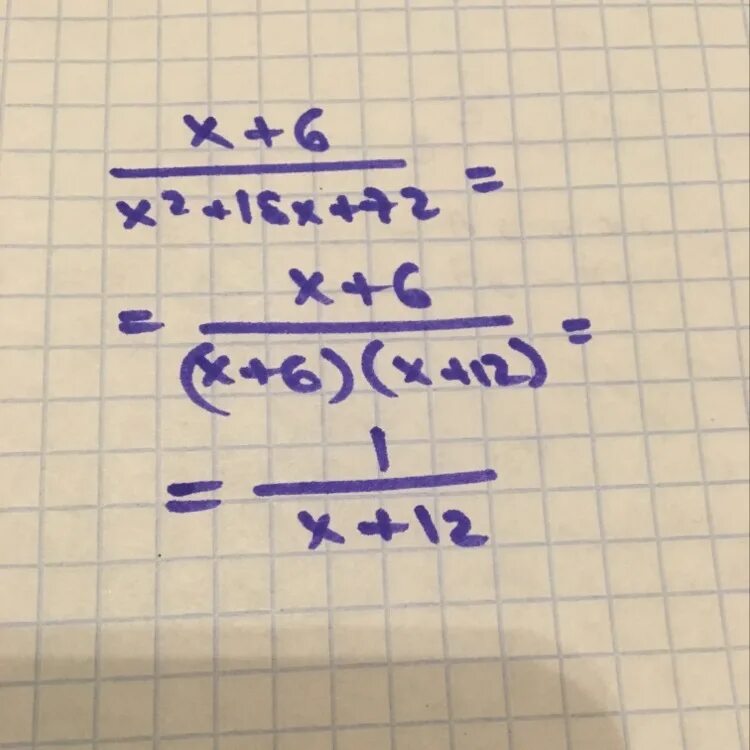 x + 6
x² + 18x + 72 =
= x + 6
(x + 6)(x + 12) =
= 1
x + 12